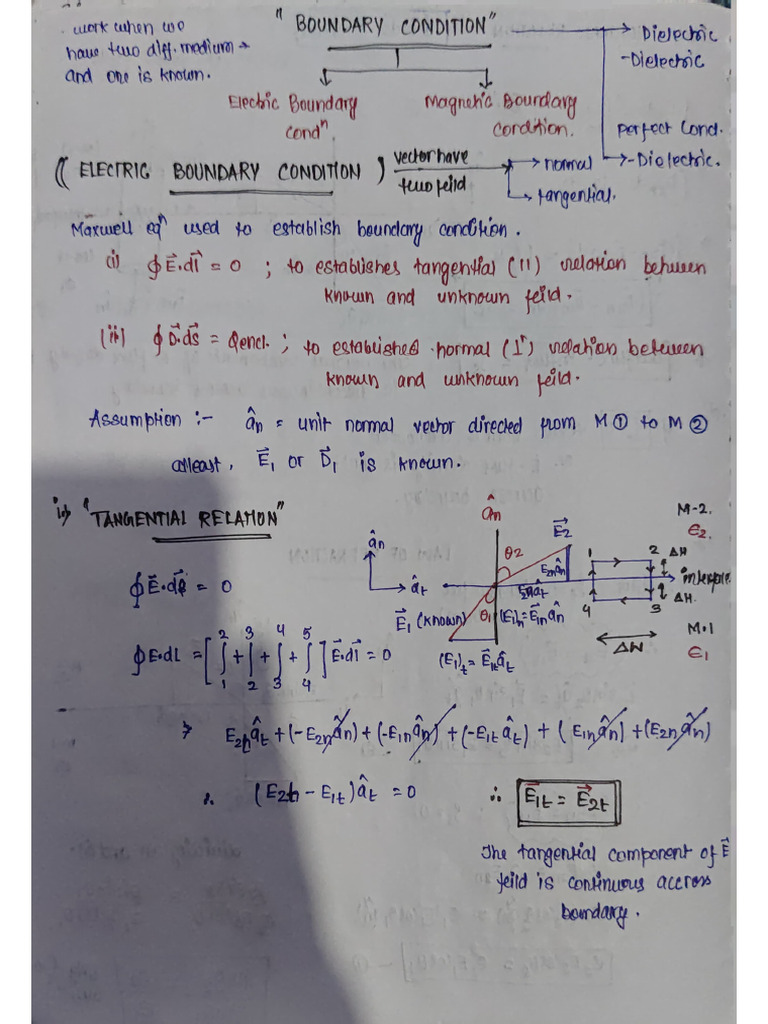 work when we
have two diff. medium
and one is known.
" BOUNDARY CONDITION"
Dielectric
-Dielectric
Electric Boundary
Condⁿ.
Magnetic Boundary
Condition.
perfect Cond.
-Dielectric.
(( ELECTRIC BOUNDARY CONDITION )
vector have
two feild
normal
tangential.
Maxwell eqⁿ used to establish boundary condition.
(i) ∮E⃗.dl⃗ = 0 ; to establishes tangential (11) relation between
known and unknown feild.
(ii) ∮D⃗.ds⃗ = Qencl. ; to established normal (⊥r) relation between
known and unknown feild.
Assumption :- ân = unit normal vector directed from M① to M②
atleast, E⃗1 or D⃗1 is known.
i) "TANGENTIAL RELATION"
∮E⃗.dl⃗ = 0
∮E.dL = [∫₁² + ∫₂³ + ∫₃⁴ + ∫₄⁵] E⃗.dl⃗ = 0
ân
ât
ân
E⃗2
θ2
E2nân
E2tât
E⃗1 (known)
θ1
(E1)n = E⃗1nân
(E1)t = E⃗1tât
M-2.
ε2.
1
2
ΔH
interface
ΔH.
4
3
ΔW
M.1
ε1
⇒ E2tât + (-E2nân) + (-E1nân) + (-E1tât) + (E1nân) + (E2nân)
∴ (E2t - E1t)ât = 0
∴ E⃗1t = E⃗2t
The tangential component of E⃗
feild is continuous accross
boundary.